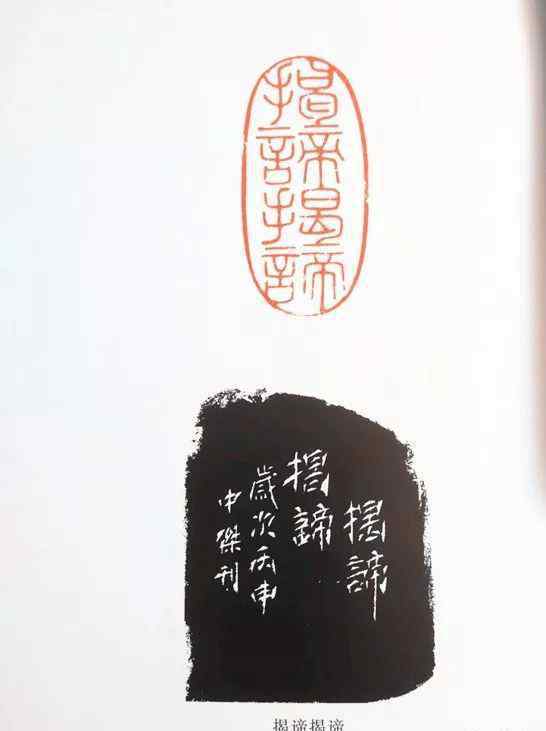 揭
諦
揭
諦
揭諦
揭諦
歲次丙申
中傑刊
揭谛揭谛